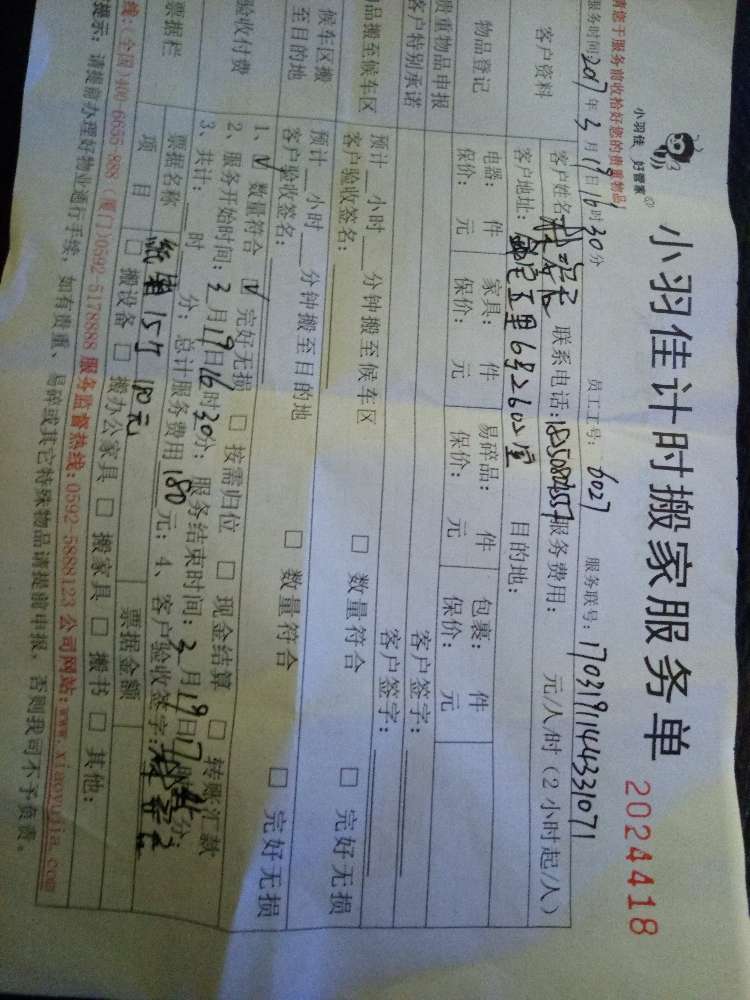 小羽佳 好管家
小羽佳计时搬家服务单
2024418
请您于服务前收拾好您的贵重物品
服务时间: 2017年3月19日16时30分 员工工号: 6027 服务联号: 1703191144331071
客户资料
客户姓名: 联系电话: 服务费用: 元/人/时(2小时起/人)
客户地址: 五里68号2602室 目的地:
物品登记
电器: 件 家具: 件 易碎品: 件 包裹: 件
保价: 元 保价: 元 保价: 元 保价: 元
贵重物品申报 客户签字:
客户特别承诺 客户签字:
品搬至候车区
预计__小时__分钟搬至候车区 □ 数量符合 □ 完好无损
客户验收签名:
候车区搬至目的地
预计__小时__分钟搬至目的地 □ 数量符合 □ 完好无损
客户验收签名:
验收付费
1、☑ 数量符合 ☑ 完好无损 □ 按需归位 □ 现金结算 □ 转账汇款
2、服务开始时间: 3月19日16时30分; 服务结束时间: 3月19日17时 分;
3、共计: 时 分; 总计服务费用180元; 4、客户验收签字:
票据栏
票据名称 纸箱15个 票据金额
项目 □ 搬设备 □ 搬办公家具 □ 搬家具 □ 搬书 □ 其他:
线:(全国)400-6655-888 (厦门)0592-5178888 服务监督热线: 0592-5888123 公司网站: www.xiaoyujia.com
提示: 请提前办理好物业通行手续, 如有贵重、易碎或其它特殊物品请提前申报, 否则我司不予负责。